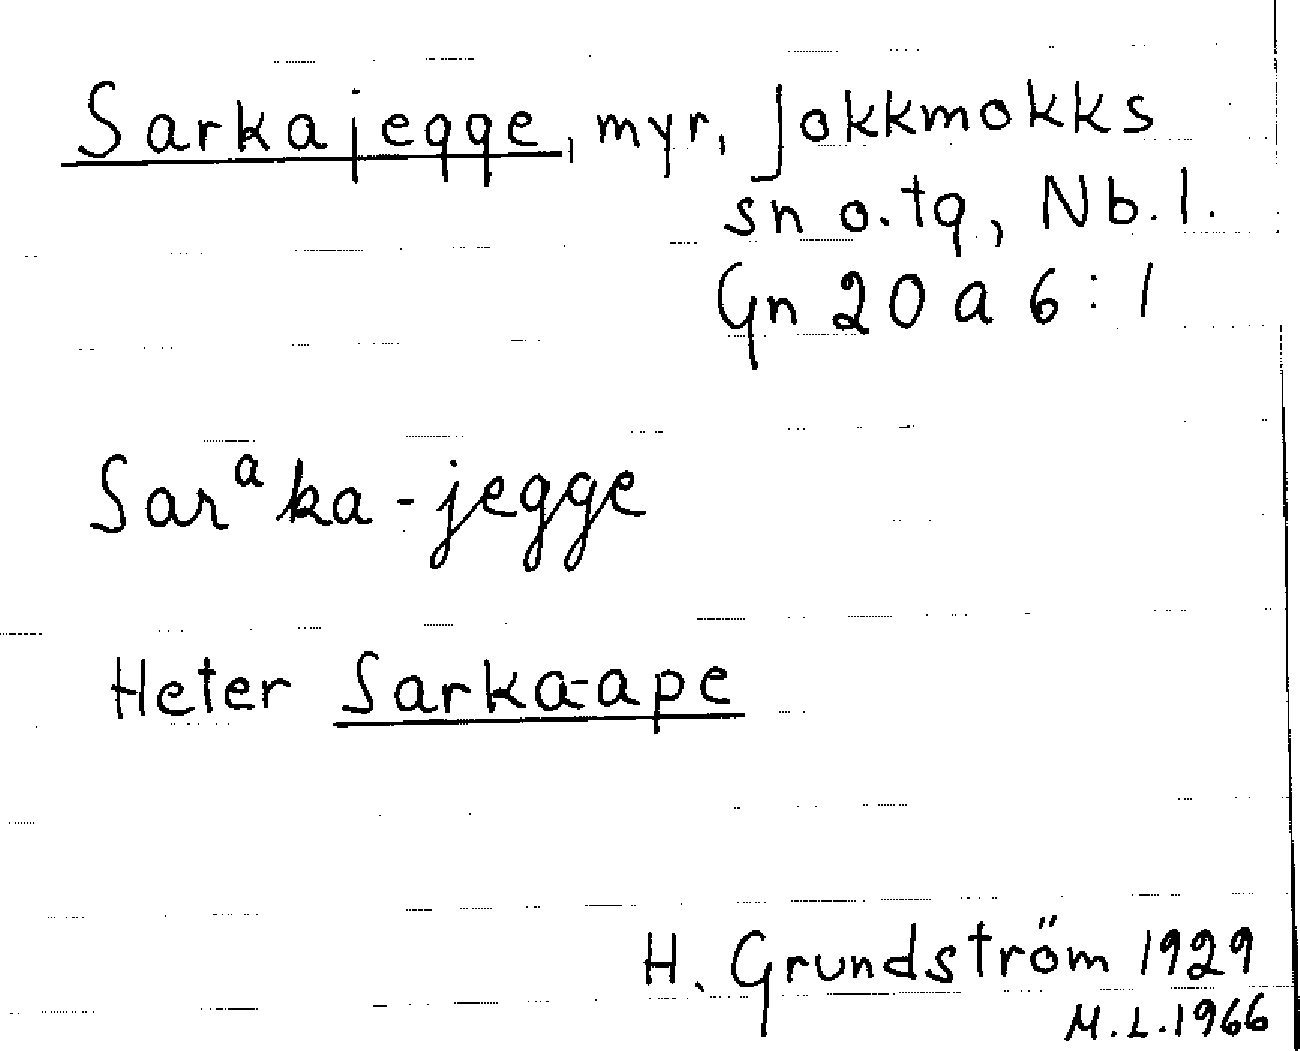 Sarkajegge, myr, Jokkmokks
sn o. tg, Nb. l.
Gn 20 a 6:1
Sarᵃka-jegge
Heter Sarka-ape
H. Grundström 1929
M.L.1966